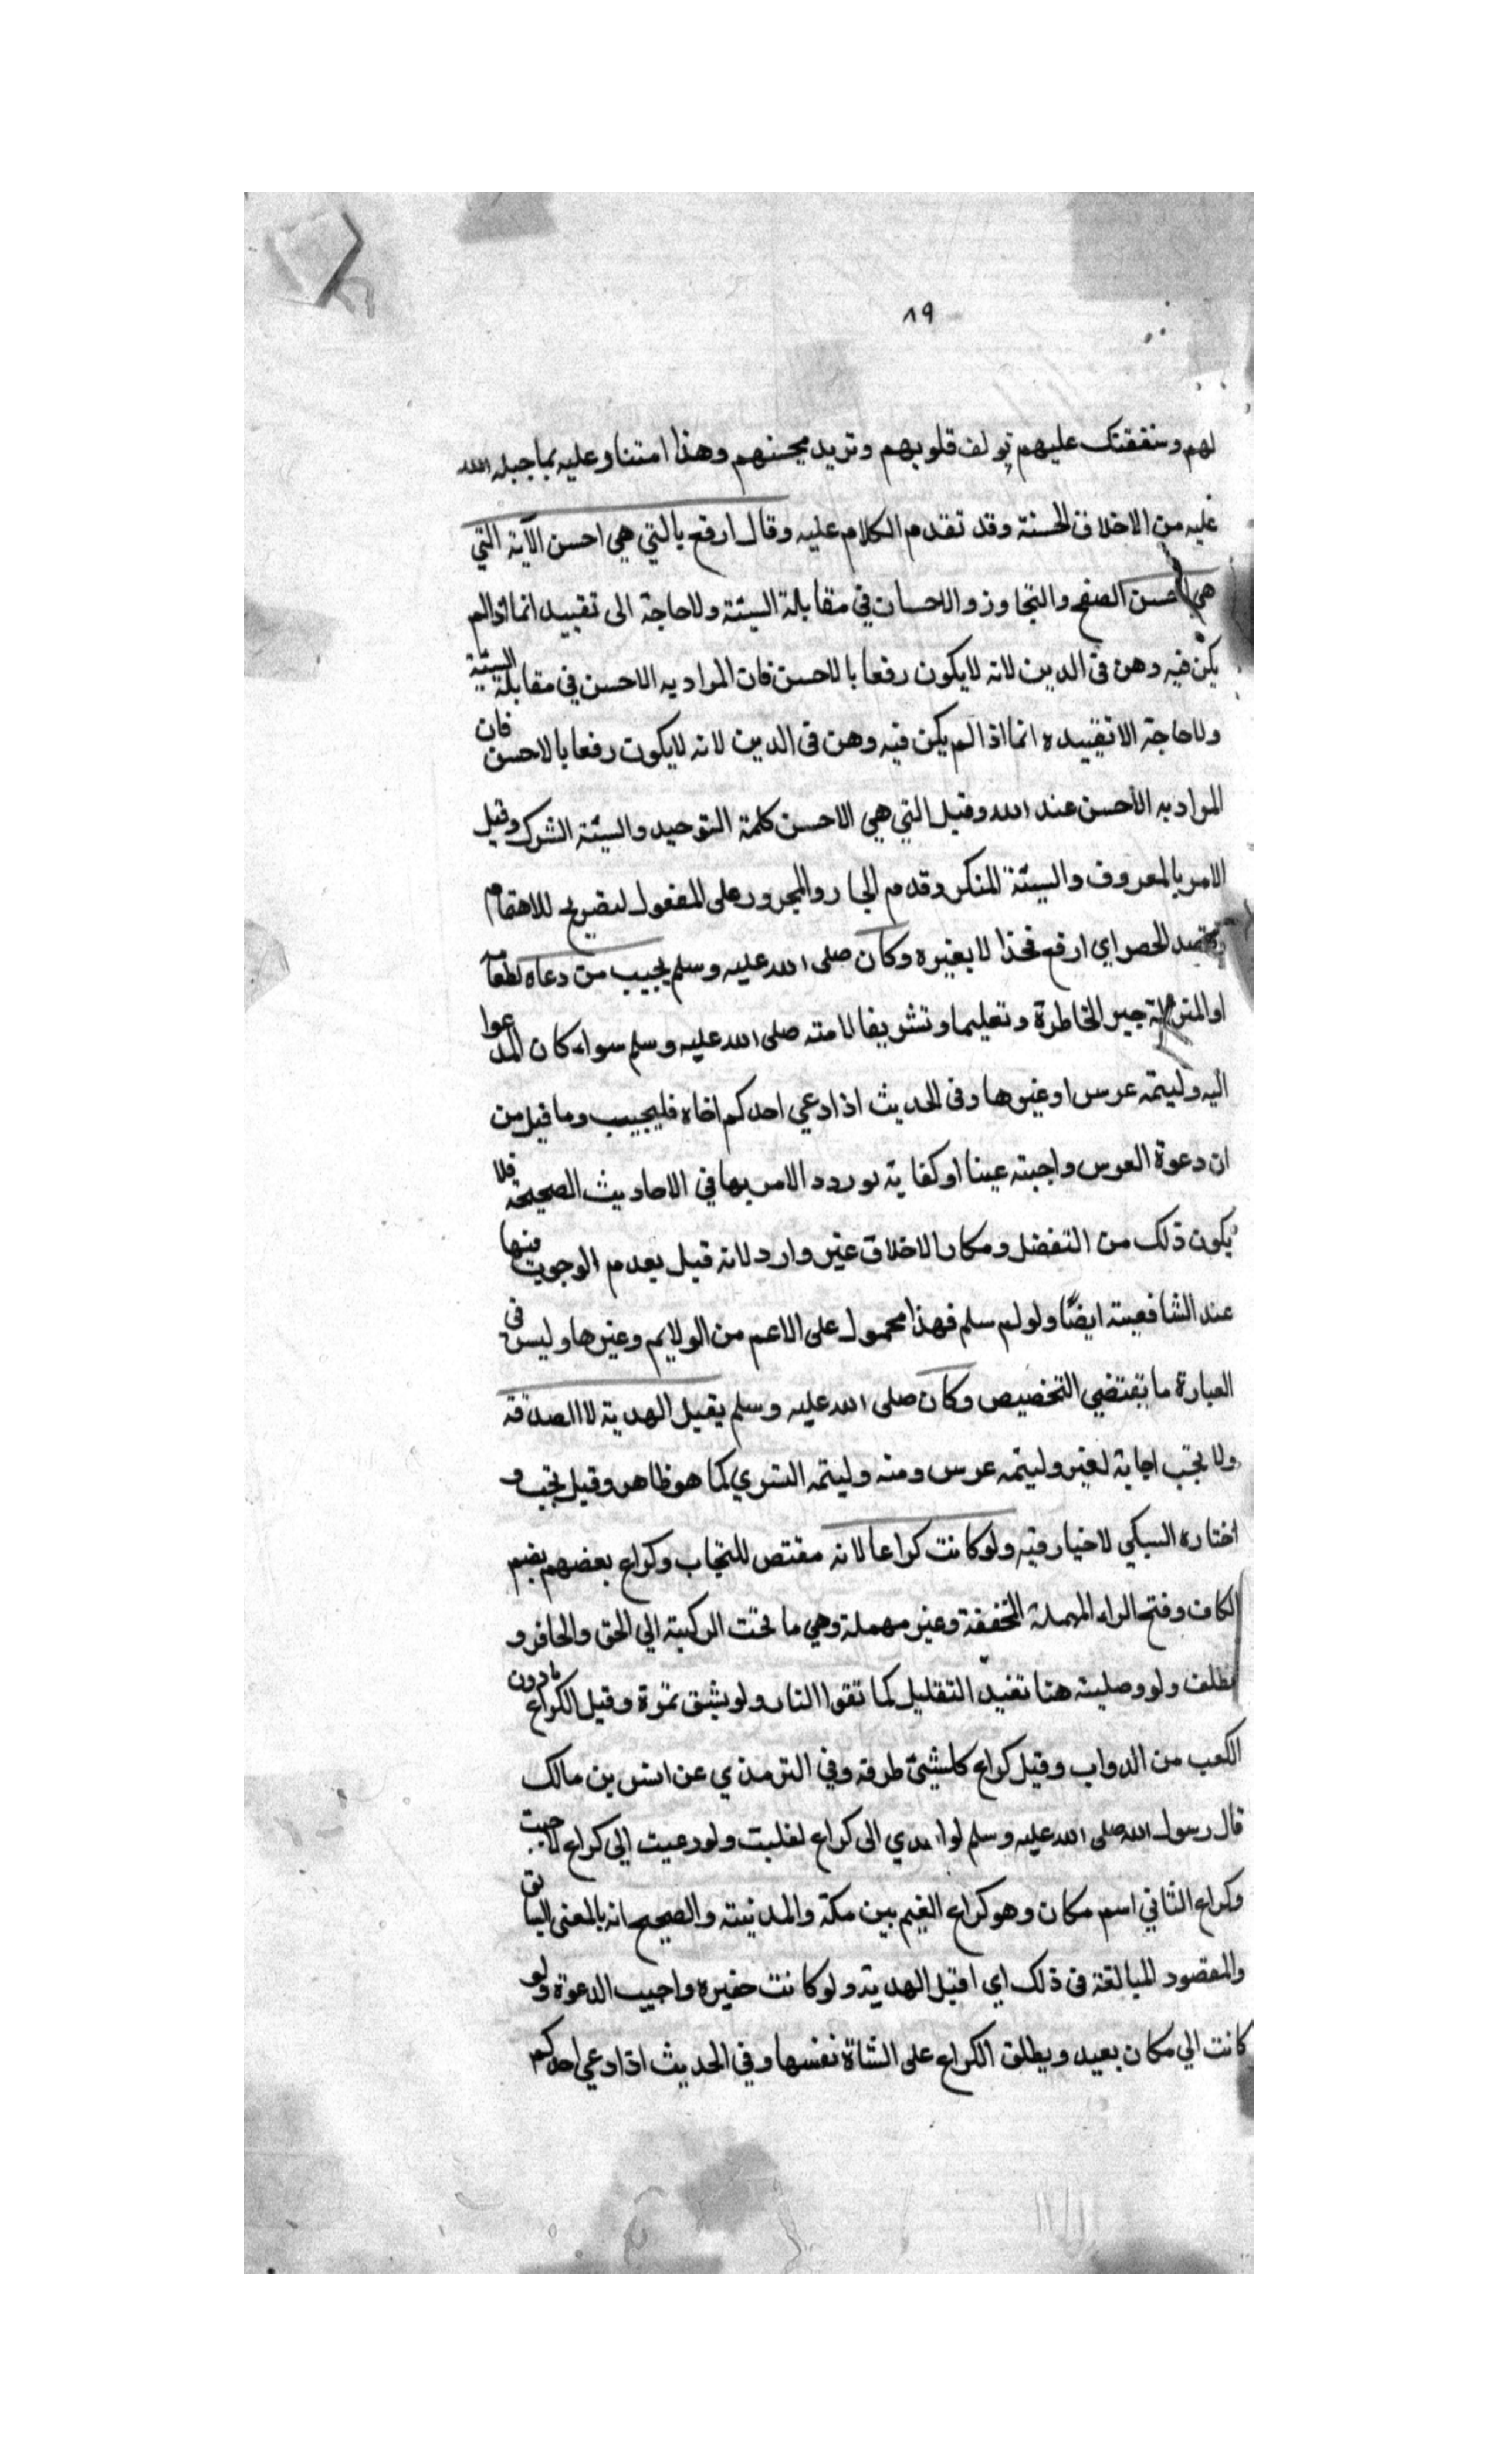 ٨٩
لهم وشفقتك عليهم تولف قلوبهم وتزيد محبتهم وهذا امتنا وعليه بما جبله الله
عليه من الاخلاق الحسنة وقد تقدم الكلام عليه وقال ارفع بالتي هي احسن الآية التي
هي احسن الصفح والتجاوز والاحسان في مقابلة السيئة ولاحاجة الى تقييد انما اذا لم
يكن فيه وهن في الدين لانه لايكون رفعا بالاحسن فان المراد به الاحسن في مقابلة السيئة
ولاحاجة الا تقييده انما اذا لم يكن فيه وهن في الدين لانه لايكون رفعا بالاحسن فان
المراد به الأحسن عند الله وقيل التي هي الاحسن كلمة التوحيد والسيئة الشرك وقيل
الامر بالمعروف والسيئة المنكر وقدم الجار والمجرور على المفعول لتضريح للاهتمام
وتخصد الحصر اي ارفع فخذا لا بغيره وكان صلى الله عليه وسلم يجيب من دعاه لطعامه
او المنزله جبر الخاطرة وتعليما وتشريفا لامته صلى الله عليه وسلم سواء كان المدعوا
اليه وليتمه عرس او غيرها وفى الحديث اذا دعي احدكم اخاه فليجيب وما قيل من
ان دعوة العرس واجبته عينا او كفاية لورود الامر بها في الاحاديث الصحيحة فلا
يكون ذلك من التفضل ومكار الاخلاق غير وارد لانه قيل بعدم الوجوب منها
عند الشافعيته ايضًا ولو لم سلم فهذا محمول على الاعم من الولايم وغيرها وليس فى
العبارة ما يقتضي التخصيص وكان صلى الله عليه وسلم يقبل الهدية لا الصدقة
ولا يجب اجابة لغير وليتمه عرس ومنه وليتمه التسري كما هو ظاهر وقيل تجب و
اختاره السبكي لاخبار فيه ولو كانت كراعا لانه مقتص للتجاب وكراع بعضهم بضم
الكاف وفتح الراء المهملة المخففة وعين مهملة وهي ما تحت الركبة الي الحق والحافر و
الظلف ولو وصليته هنا تفيد التقليل كما تقوا النار ولو بشق تمرة وقيل الكراع مادون
الكعب من الدواب وقيل كراع كل شيئ طرفه وفي الترمذي عن انس بن مالك
قال رسول الله صلى الله عليه وسلم لو اهدي الى كراع لقلبت ولو دعيت الي كراع لاجبت
وكراع الثاني اسم مكان وهو كراع الغيم بين مكة والمدنيته والصحيح انه بالمعنى السابق
والمقصود المبالغة فى ذلك اي اقبل الهدية ولو كانت حقيره واجيب الدعوة ولو
كانت الي مكان بعيد ويطلق الكراع على الشاة نفسها وفي الحديث اذا دعي احدكم